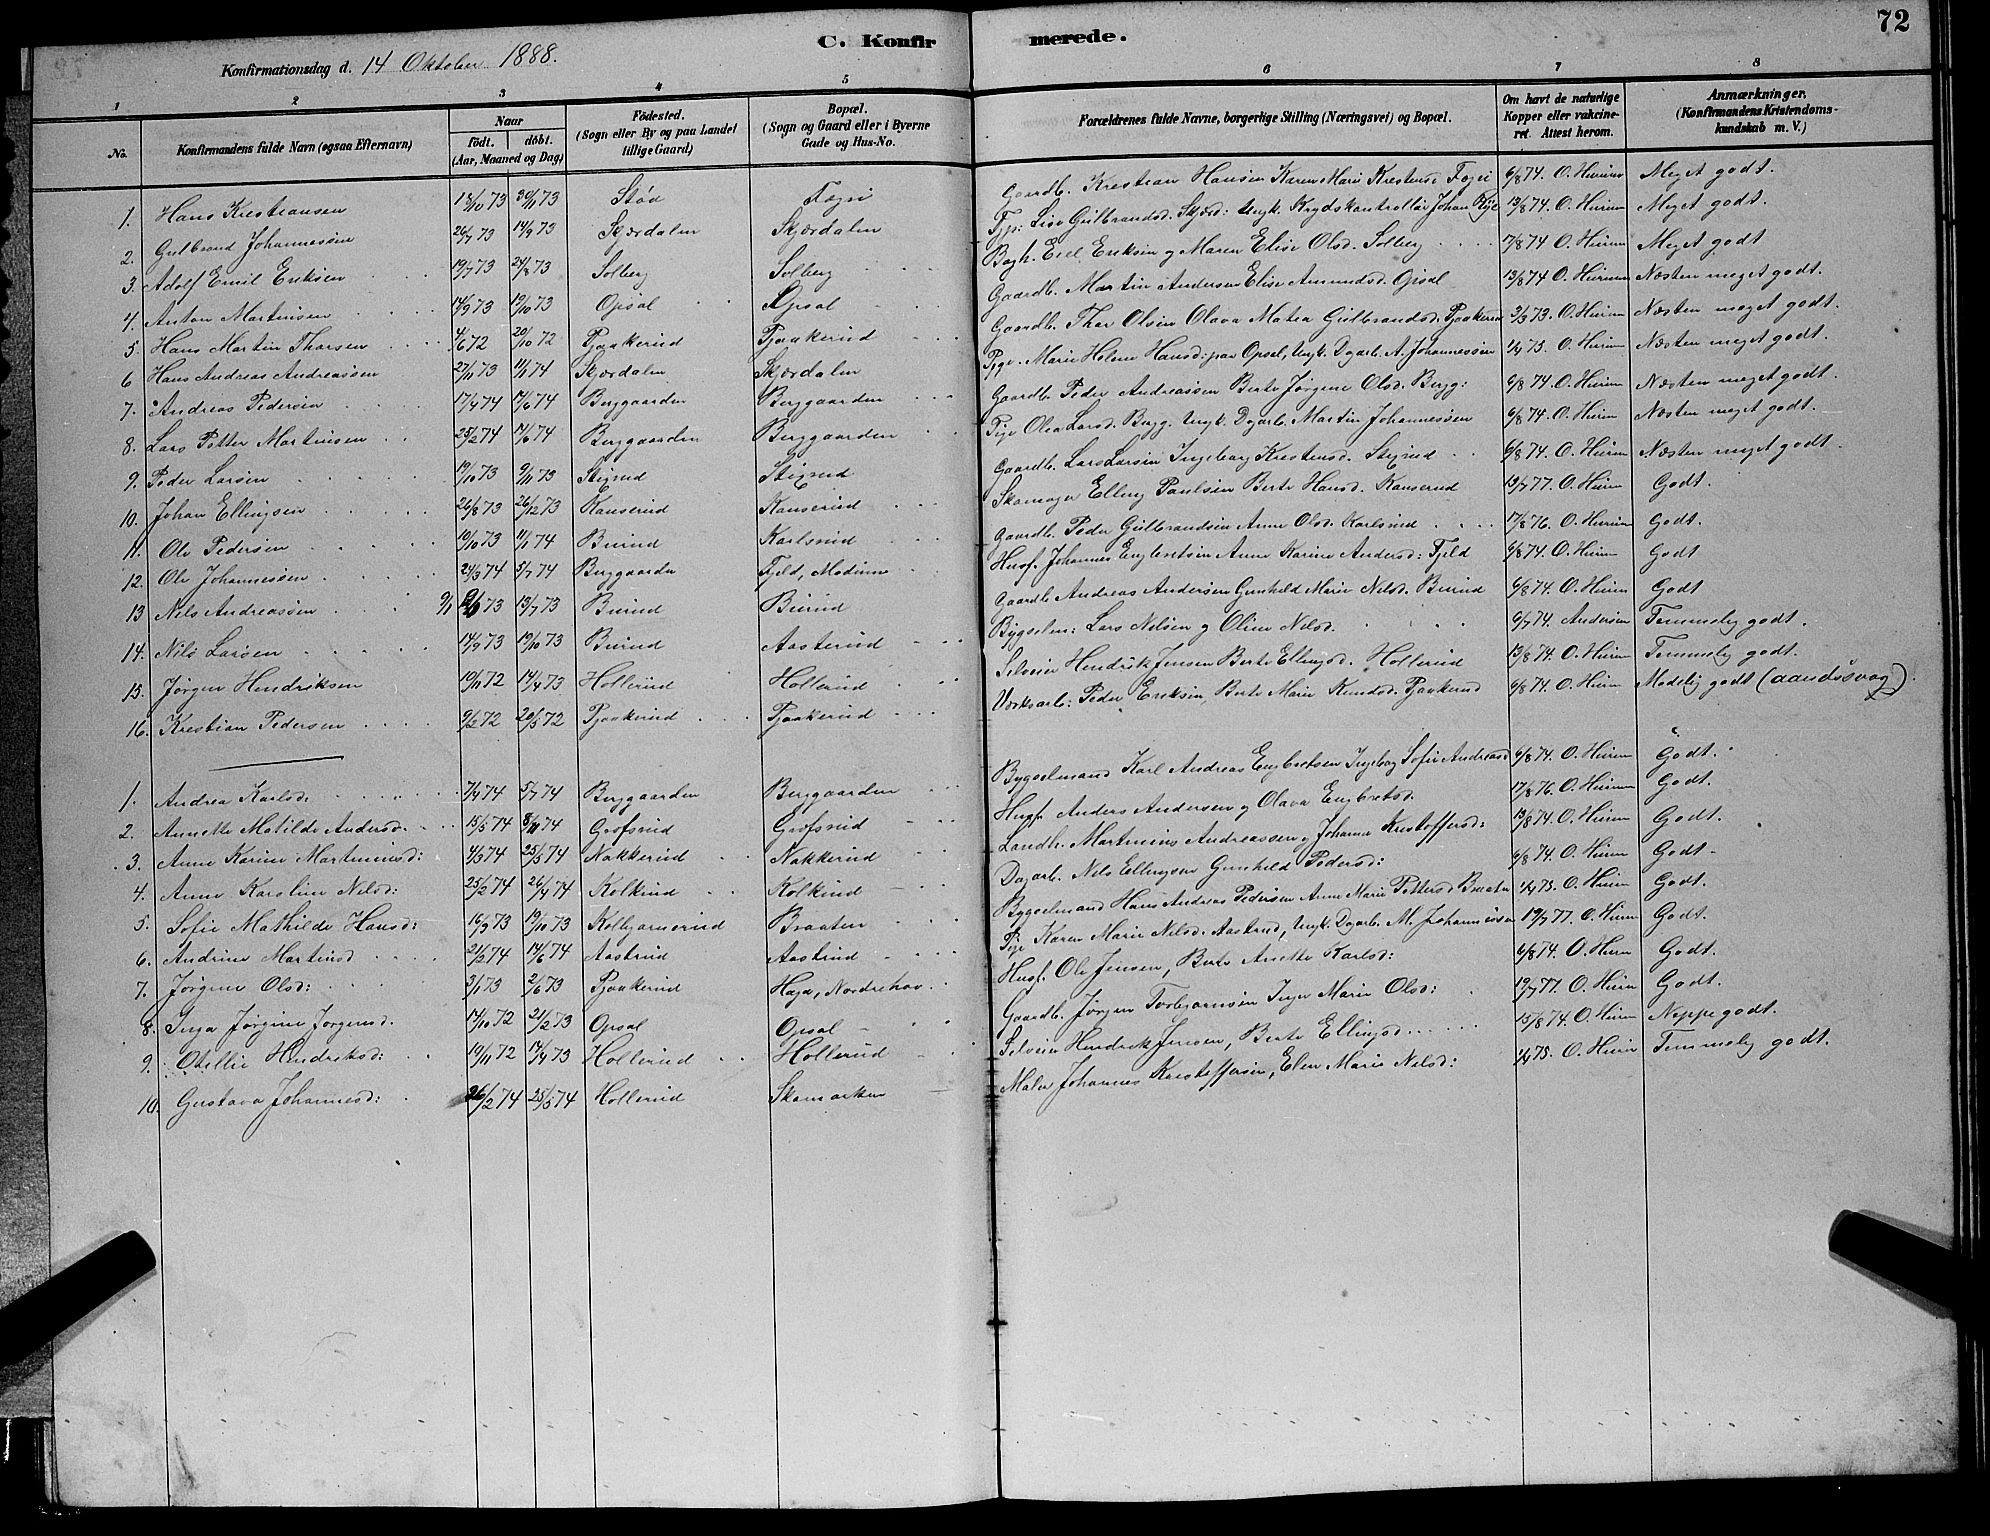 72
C. Konfirmerede.
Konfirmationsdag d. 14 Oktober 1888.
1 2 3 4 5 6 7 8
No. Konfirmandens fulde Navn (ogsaa Efternavn) Naar födt. döbt. (Aar, Maaned og Dag) Födested. (Sogn eller By og paa Landet tillige Gaard) Bopæl. (Sogn og Gaard eller i Byerne Gade og Hus-No. Forældrenes fulde Navne, borgerlige Stilling (Næringsvei) og Bopæl. Om havt de naturlige Kopper eller vakcineret. Attest herom. Anmærkninger. (Konfirmandens Kristendomskundskab m. V.)
1. Hans Krestiansen 18/10 73 30/11 73 Stød Fægri Gaardb. Krestian Hansen Karen Marie Krestensd. Fægri 6/8 74. O. Hurum Meget godt.
2. Gulbrand Johannessen 26/7 73 14/9 73 Skjærdalen Skjærdalen Lise Gulbrandsd. Skjærd: Ungk. Krydskontrollør Johan 13/8 74. O. Hurum Meget godt.
3. Adolf Emil Eriksen 19/7 73 24/8 73 Solberg Solberg Emil Eriksen og Maren Elise Olsd. Solberg 17/8 74 O. Hurum Meget godt
4. Anton Martinsen 14/9 73 19/10 73 Opsal Opsal Gaardb. Martin Andersen Elise Amundsd. Opsal 13/8 74 O. Hurum Næsten meget godt.
5. Hans Martin Thorsen 4/6 72 20/10 72 Pjaakerud Pjaakerud Gaardb. Thor Olsen Olava Matea Gulbrandsd. Pjaakerud 2/3 73. O. Hurum Næsten meget godt.
6 Hans Andreas Andreassen 27/11 73 11/1 74 Skjærdalen Skjærdalen Pge. Marie Helene Hansd: paa Opsal, Ungk. Dgarb. A. Johannessen 1/4 75. O. Hurum Næsten meget godt.
7. Andreas Pedersen 17/4 74 14/6 74 Berggaarden Berggaarden Gaardb. Peder Andreassen Berte Jørgine Olsd. Berg: 6/8 74. O. Hurum Næsten meget godt.
8. Lars Petter Martinsen 25/2 74 14/6 74 Berggaarden Berggaarden Pige Olea Larsd. Berg. Ungk. Dgarb. Martin Johannessen 6/8 74. O. Hurum Næsten meget godt.
9. Peder Larsen 19/10 73 9/11 73 Stixrud Stixrud Gaardb. Lars Larsen Ingeborg Krestensd. Stixrud 6/8 74. O. Hurum Næsten meget godt.
10. Johan Ellingsen 26/8 73 26/12 73 Kanserud Kanserud Skomager Elling Paulsen Berte Hansd. Kanserud 19/7 77. O. Hurum Godt.
11. Ole Pedersen 10/10 73 11/1 74 Burud Karlsrud Gaardb. Peder Gulbrandsen Anne Olsd. Karlsrud 17/8 76. O. Hurum Godt.
12. Ole Johannessen 24/3 74 5/7 74 Berggaarden Fjeld, Modum Husf. Johannes Engbretsen Anne Karine Andersd: Fjeld 6/8 74. O. Hurum Godt
13 Nils Andreassen 9/1 73 13/7 73 Burud Burud Gaardb Andreas Andersen Gunhild Marie Nilsd. Burud 6/8 74. O. Hurum Godt
14. Nils Larsen 14/9 73 19/10 73 Burud Aasterud Bygselm: Lars Nilsen og Oline Nilsd. 9/7 74. Andersen Temmelig godt.
15. Jørgen Hendriksen 19/11 72 14/4 73 Hollerud Hollerud Selveier Hendrik Jensen Berte Ellingsd. Hollerud 13/8 74. O. Hurum Temmelig godt.
16. Krestian Pedersen 9/2 72 20/5 72 Pjaakerud Pjaakerud Værksarb: Peder Eriksen, Berte Marie Knudsd. Pjaakerud 6/8 74. O. Hurum Maadelig godt (aandssvag).
1. Andrea Karlsd. 7/4 74 5/7 74 Berggaarden Berggaarden Bygselmand Karl Andreas Engbretsen Ingeborg Sofie Andreasd 6/8 74. O. Hurum Godt.
2. Annette Matilde Andersd. 15/5 74 8/11 74 Grøfsrud Grøfsrud Husf. Anders Andersen og Olava Engbretsd. 17/8 76. O. Hurum Godt.
3. Anne Karine Martiniusd: 4/3 74 25/5 74 Nakkerud Nakkerud Landh. Martinius Andreassen og Johanne Kristoffersd: 13/8 74. O. Hurum Godt.
4. Anne Karoline Nilsd: 25/2 74 26/4 74 Kolkind Kolkind Dagarb. Nils Ellingsen Gunhild Pedersd: 6/8 74. O. Hurum Godt.
5. Sofie Mathilde Hansd: 16/9 73 19/10 73 Kolbjørnerud Braaten Bygselmand Hans Andreas Pedersen Anne Marie Pettersd Braaten 1/4 75. O. Hurum Godt.
6. Andrine Martinsd 21/2 74 14/6 74 Aastrud Aastrud Pige Karen Marie Nilsd. Aastrud, Ungk. Dgarb. M. Johannessen 19/7 77. O. Hurum Godt.
7. Jørgine Olsd: 3/1 73 2/6 73 Pjaakerud Haga, Norderhov Husf. Ole Jensen, Berte Anette Karlsd: 6/8 74. O. Hurum Godt.
8. Inga Jørgine Jørgensd. 14/10 72 21/2 73 Opsal Opsal Gaardb. Jørgen Torbjørnsen Inger Marie Olsd: 19/7 77. O. Hurum Godt.
9. Otellie Hendriksd: 19/11 72 14/4 73 Hollerud Hollerud Selveier Hendrik Jensen, Berte Ellingsd. 15/8 74. O. Hurum Neppe godt.
10. Gustava Johannesd: 26/2 74 25/5 74 Hollerud Skamarken Maler Johannes Kristoffersen, Elen Marie Nilsd: 1/4 75. O. Hurum Temmelig godt.